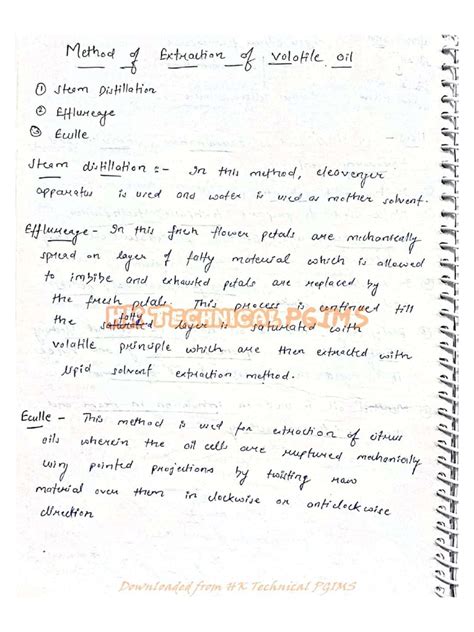 Method of Extraction of volatile oil
① Steam Distillation
② Efflureage
③ Eculle
Steam distillation :- In this method, clevenger
apparatus is used and water is used as mother solvent.
Efflureage - In this fresh flower petals are michanically
spread on layer of fatty material which is allowed
to imbibe and exhausted petals are replaced by
the fresh petals. This process is continued till
the fatty layer is saturated with
HK TECHNICAL PGIMS
volatile principle which are then extracted with
lipid solvent extraction method.
Eculle - This method is used for extraction of citrus
oils wherein the oil cells are ruptured mechanically
using pointed projections by twisting raw
material over them in clockwise or anticlockwise
direction
Downloaded from HK Technical PGIMS